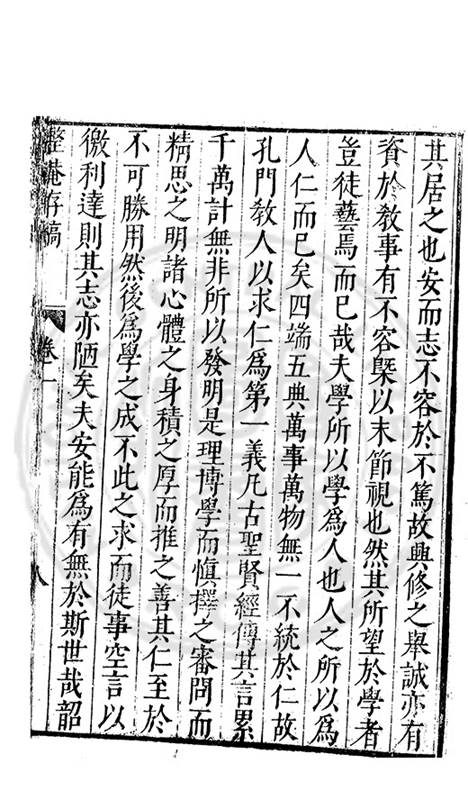 其居之也安而志不容於不篤故興修之舉誠亦有
資於敎事有不容槩以末節視也然其所望於學者
豈徒藝焉而已哉夫學所以學爲人也人之所以爲
人仁而已矣四端五典萬事萬物無一不統於仁故
孔門敎人以求仁爲第一義凡古聖賢經傳其言累
千萬計無非所以發明是理博學而愼擇之審問而
精思之明諸心體之身積之厚而推之善其仁至於
不可勝用然後爲學之成不此之求而徒事空言以
徼利達則其志亦陋矣夫安能爲有無於斯世哉韶
整庵存稿 卷一 八